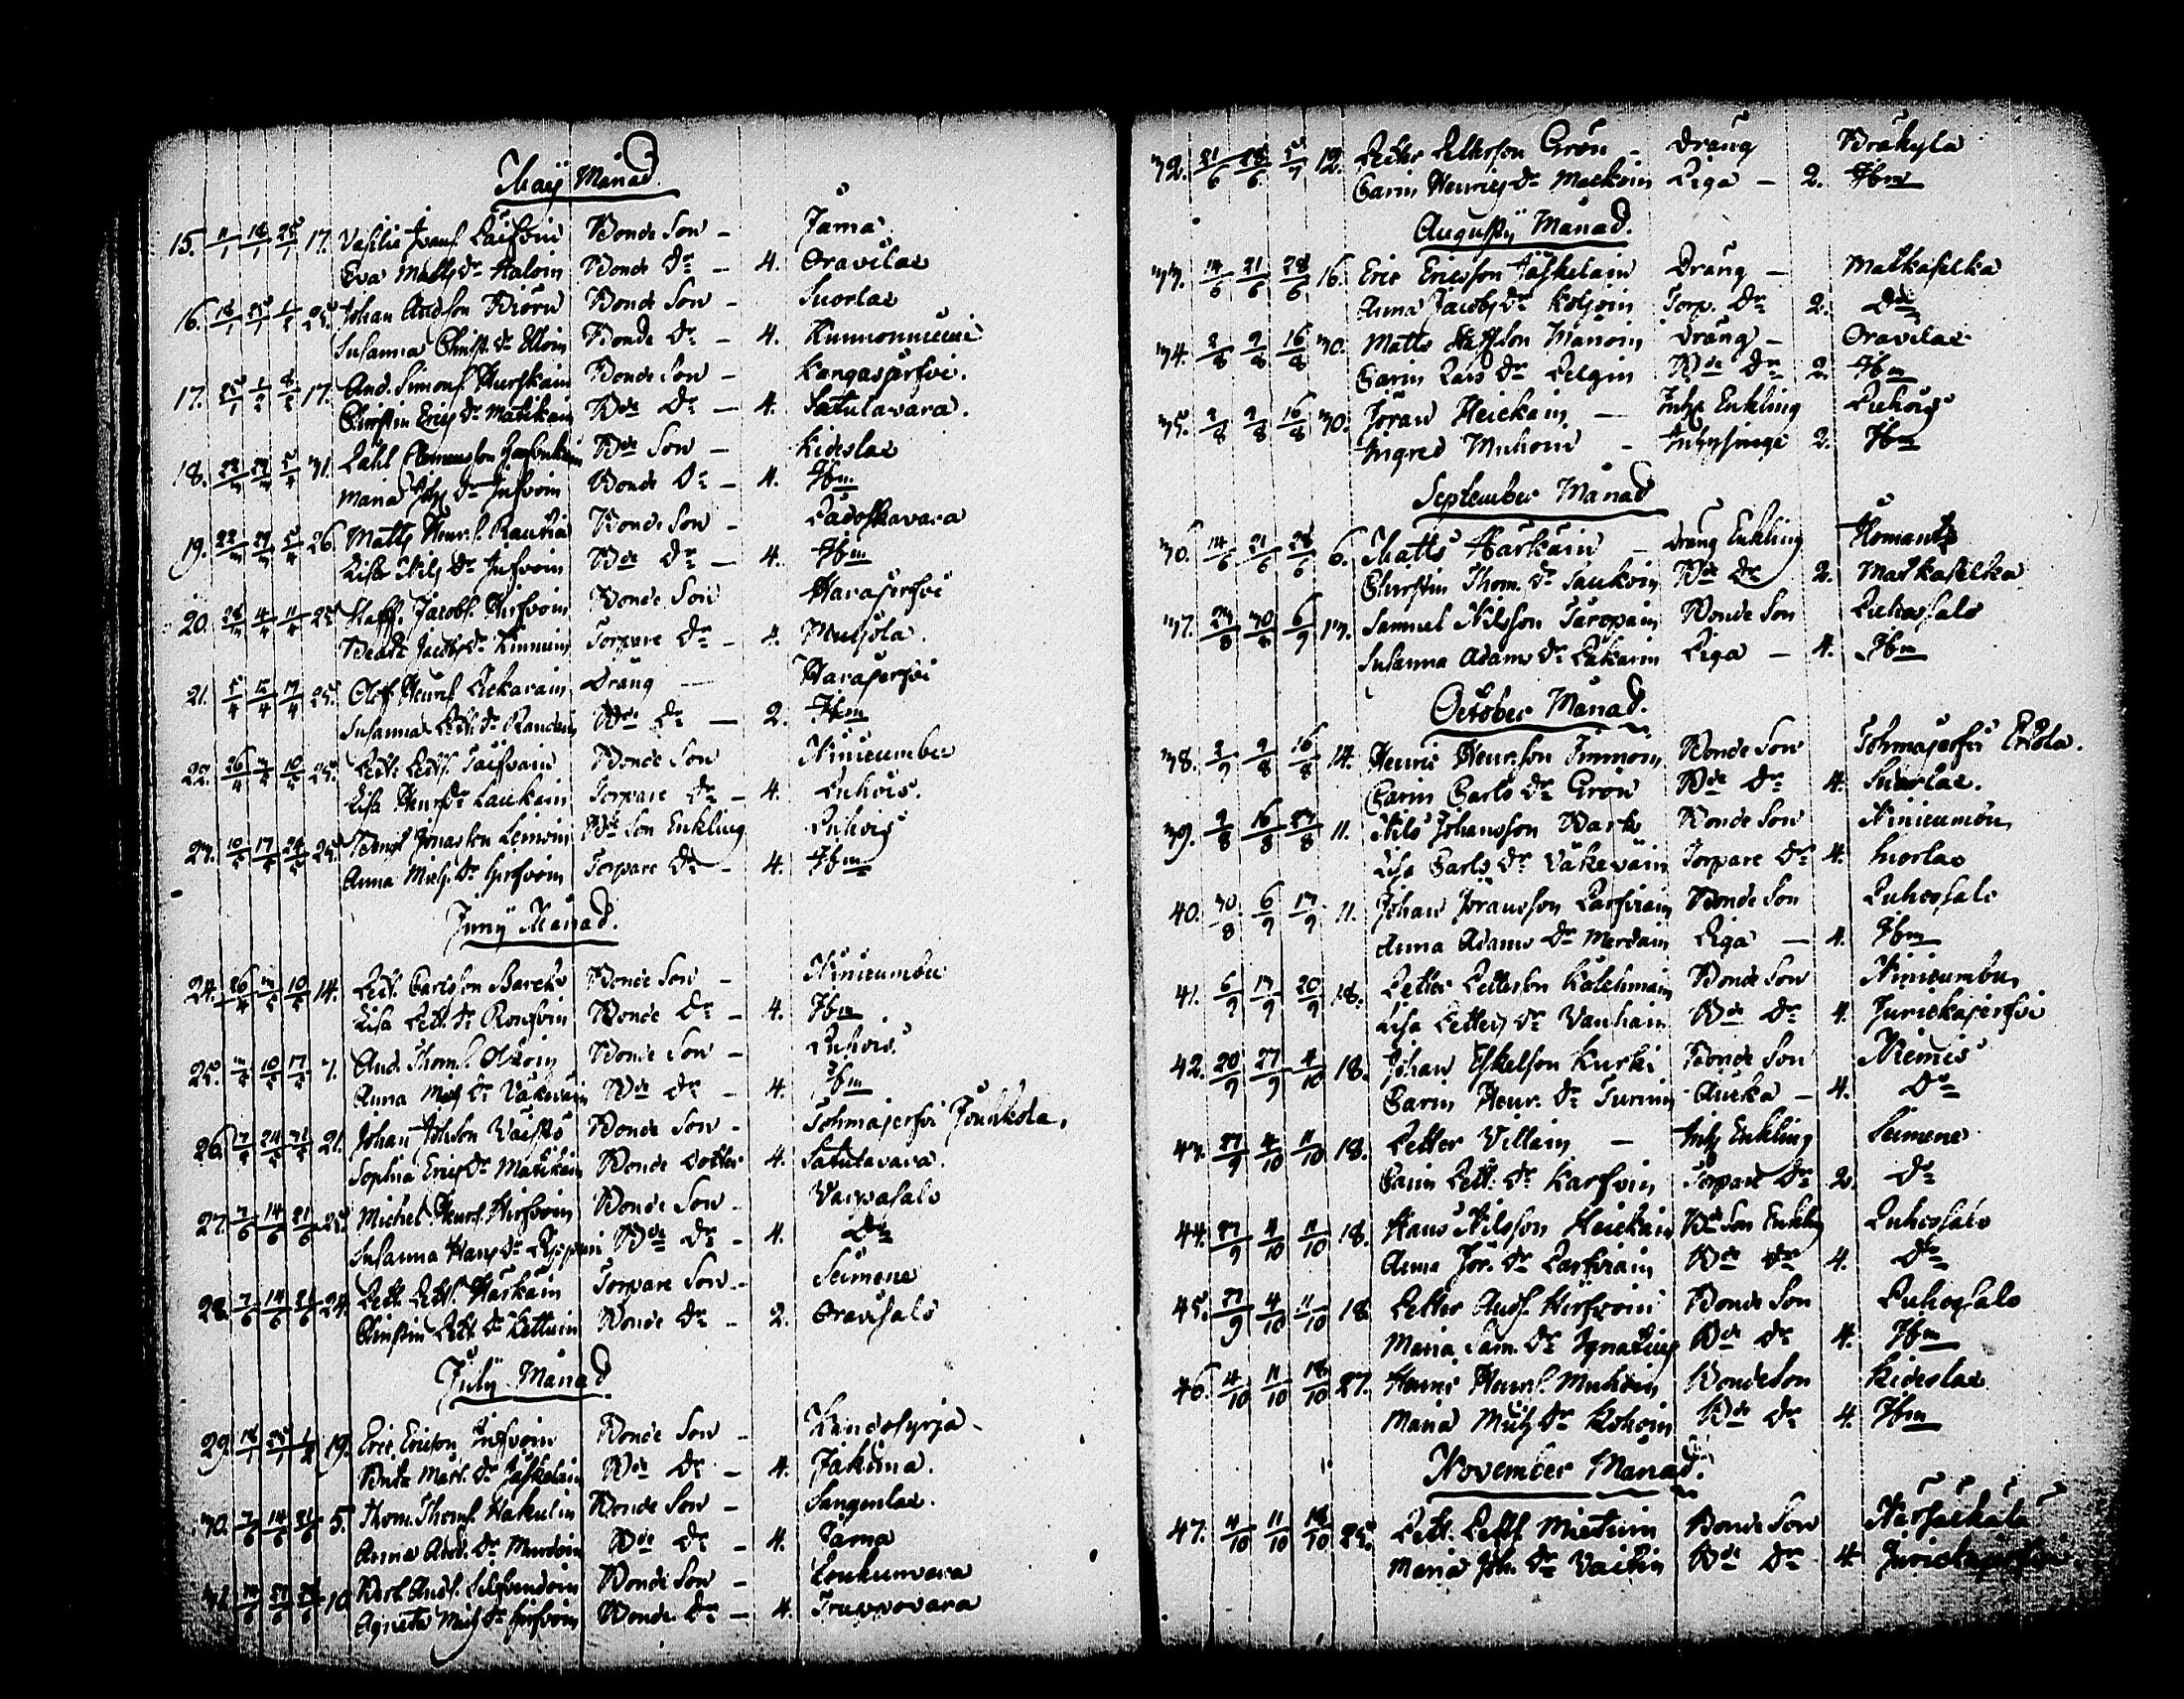 May Månad.
15. 11/1 18/1 25/1 17. Vasilie Ivans. Bonde Son – Jama
Eva Matts Dr Haloin Bonde Dr – 4. Oravilax
16. 18/1 25/1 1/2 25. Johan Andson Biörn Bonde Son – Suorlax
Susanna Christ. Dr Bonde Dr – 4. Kunnonniemi
17. 25/1 1/2 8/2 17. And. Simons. Hurskain Bonde Son – Kangasjerfvi.
Christin Erics Dr Matikain Bde Dr – 4. Satulavara.
18. 22/3 29/3 5/4 31. Påhl Clemensson Bde Son – Kideslax
Maria Joh. Dr Bonde Dr – 4. Ibm
19. 22/3 29/3 5/4 26. Matts Henrs. Rautia Bonde Son – Padoskavara
Lisa Nils Dr Bde Dr – 4. Ibm
20. 28/3 4/4 11/4 25. Staff. Jacobs. Hirfvoin Bonde Son Harajerfvi
Beata Jacobs Dr Kinnuin Torpare Dr – 4. Mutjola.
21. 5/4 12/4 19/4 25. Olof Henrs. Pekarain Dräng Harajerfvi
Susanna Pett. Dr Bde Dr – 2. Ibm
22. 26/4 3/5 10/5 25. Pett. Petts. Bonde Son Ninicumbu
Lisa Henrs Dr Laukain Torpare Dr – 4. Puhois.
23. 10/5 17/5 24/5 25. Bengt Jonasson Leinoin Bde Son Enkling Puhois
Anna Mich. Dr Hirfvoin Torpare Dr – 4. Ibm
Juny Månad.
24. 26/4 3/5 10/5 14. Pett. Carlson Barck Bonde Son – Ninicumbu
Lisa Pett. Dr Bonde Dr – 4. Ibm
25. 3/5 10/5 17/5 7. And. Thoms. Olkoin Bonde Son – Puhois
Anna Mich Dr Väkeväin Bde Dr – 4. Ibm
26. 17/5 24/5 31/5 21. Johan Johson Bonde Son – Tohmajerfvi Jouhkola.
Sophia Erics Dr Matikain Bonde Dotter 4. Satulavara.
27. 7/6 14/6 21/6 25. Michel Henrs. Hirfvoin Bonde Son – Varpasalo
Susanna Hans Dr Bde Dr – 4. Do
28. 7/6 14/6 21/6 24. Pett. Petts. Harkain Torpare Son – Seimene
Christin Pett. Dr Kettuin Bonde Dr – 2. Oravisalo
July Månad
29. 18/1 25/1 1/2 19. Eric Ericson Bonde Son – Kendosyrja –
Brita Mart. Dr Jäskelain Bde Dr – 4. Jakima.
30. 7/6 14/6 21/6 5. Thom. Thoms. Hakulin Bonde Son – Sangenlax.
Anna And. Dr Murdoin Bde Dr – 4. Jama
31. 10. And. Bonde Son – Loukunvara
Agneta Mich Dr Hirfvoin Bonde Dr – 4. Truppovara
32. 21/6 28/6 5/7 12. Petter Petterson Grön – Dräng Bråkyla
Carin Henrics Dr Maekoin Piga – 2. Ibm
Augusty Månad.
33. 14/6 21/6 28/6 16. Eric Ericsson Jäskelain Dräng – Matkaselka
Anna Jacobs Dr Torp. Dr 2. Do
34. 2/8 9/8 16/8 30. Matts Staffson Dräng – Oravilax
Carin Lars Dr Bde Dr 2. Ibm
35. 2/8 9/8 16/8 30. Jöran Heickain – Inhys Enkling Puhois
Ingred Muhoin – Inhyspiga 2. Ibm
September Månad
36. 14/6 21/6 28/6 6. Matts Harkain – Dräng Enkling Homants
Christin Thom. Dr Saukoin Bde Dr 2. Matkaselka
37. 23/8 30/8 6/9 13. Samuel Nilsson Taropain Bonde Son Puhossalo
Susanna Adams Dr Pakarin Piga – 4. Ibm
October Månad.
38. 2/8 9/8 16/8 14. Henric Henrsson Immoin Bonde Son Tohmajerfvi
Carin Carls Dr Grön Bde Dr 4. Suorlax.
39. 9/8 16/8 23/8 11. Nils Johansson Bark Bonde Son Ninicumbu
Lisa Carls Dr Väkeväin Torpare Dr 4. Suorlax
40. 30/8 6/9 13/9 11. Johan Jöransson Parfviain Bonde Son Puhossalo
Anna Adams Dr Merdain Piga – 4. Ibm
41. 6/9 13/9 20/9 18. Petter Petterson Kolehmain Bonde Son Ninicumbu
Lisa Petters Dr Vanhain Bde Dr 4. Jurickajerfvi
42. 20/9 27/9 4/10 18. Johan Eskelson Kurki Bonde Son Niemis
Carin Henr. Dr Turunin Äncka – 4. Do
43. 27/9 4/10 11/10 18. Petter Villain – Inhys Enkling Seimene
Carin Pett. Dr Karfvin Torpare Dr 2. Do
44. 27/9 4/10 11/10 18. Hans Nilsson Heickain Bde Son Enkling Puhossalo
Anna Jör. Dr Parfviain Bde Dr 4. Do
45. 27/9 4/10 11/10 18. Petter Ands. Hirfvoin Bonde Son Puhossalo
Maria Sam. Dr Ignatius Bde Dr 4. Ibm
46. 4/10 11/10 18/10 27. Henric Henrs. Muhoin Bonde Son Kideslax
Maria Mich Dr Kohoin Bde Dr 4. Ibm
November Månad.
47. 4/10 11/10 18/10 25. Pett. Petts. Mietuin Bonde Son
Maria Joh. Dr Bde Dr 4. Jurickajerfvi